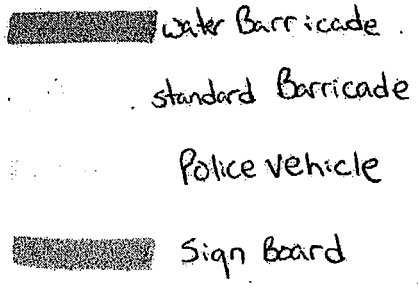 water Barricade.
standard Barricade
Police vehicle
Sign Board